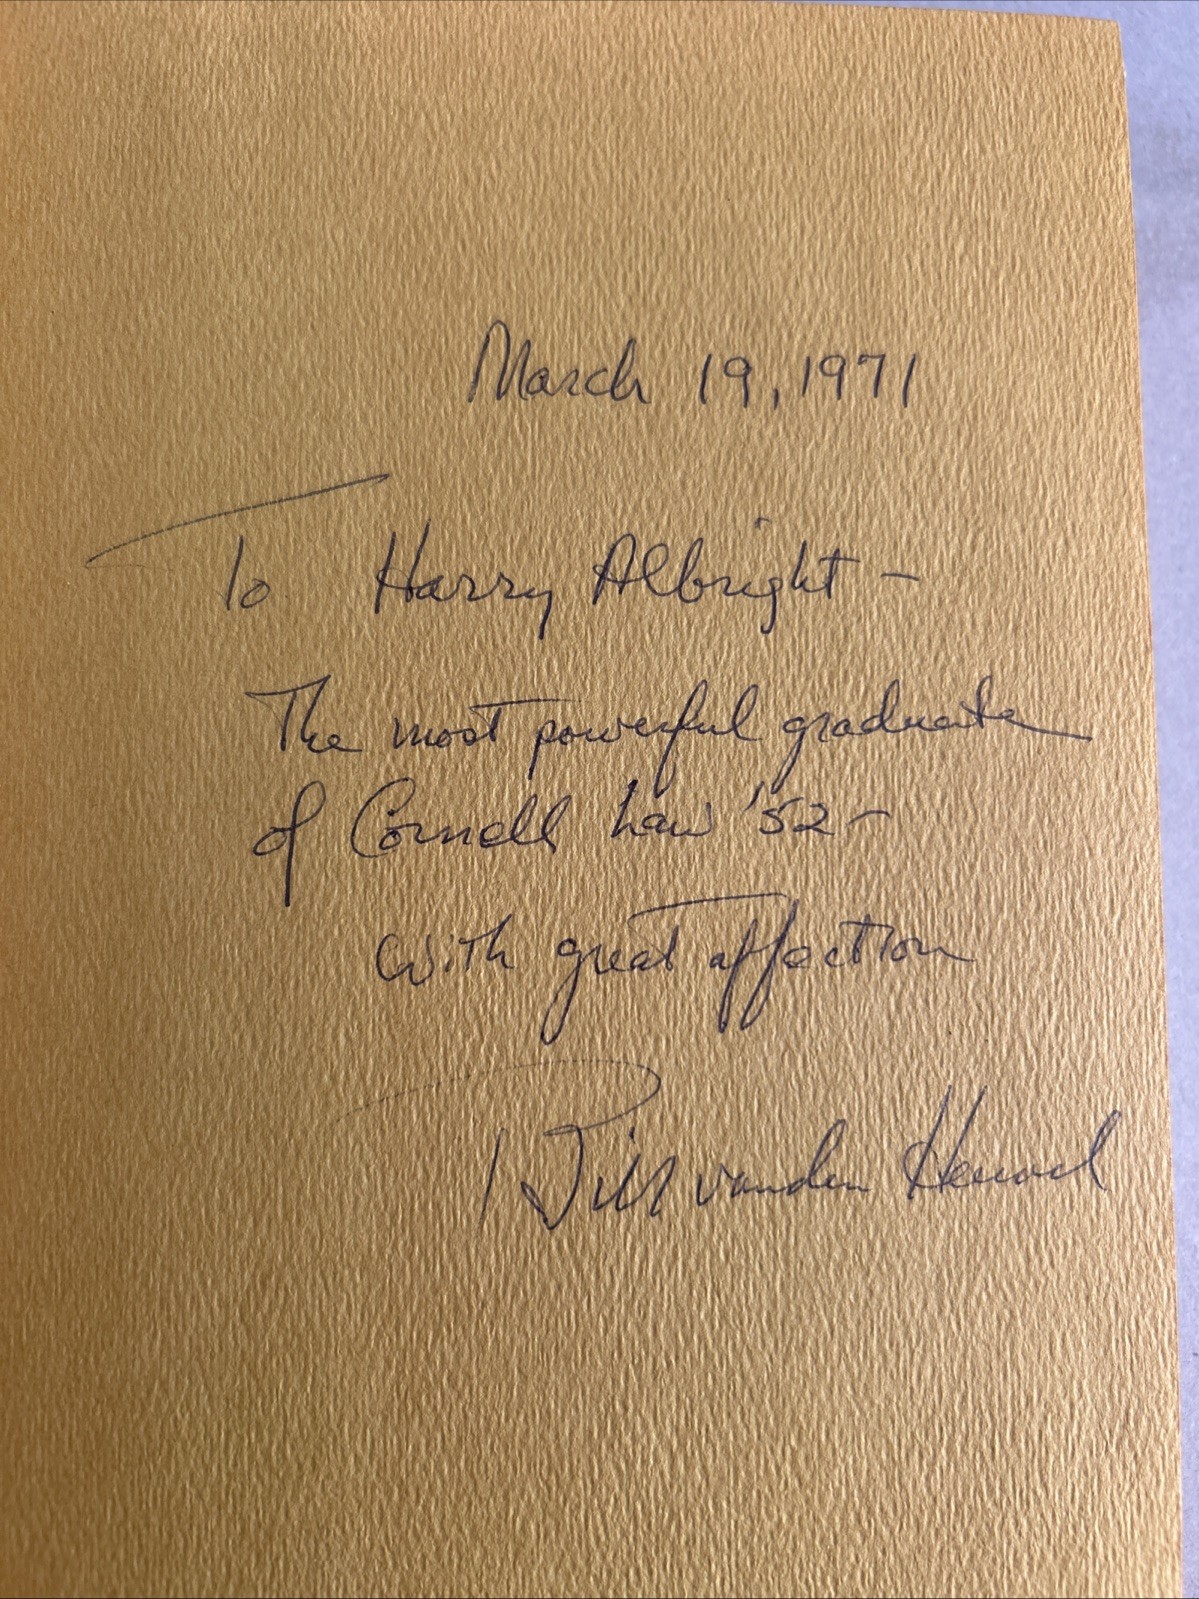 March 19, 1971
To Harry Albright –
The most powerful graduate
of Cornell Law '52 –
with great affection
Bill vanden Heuvel